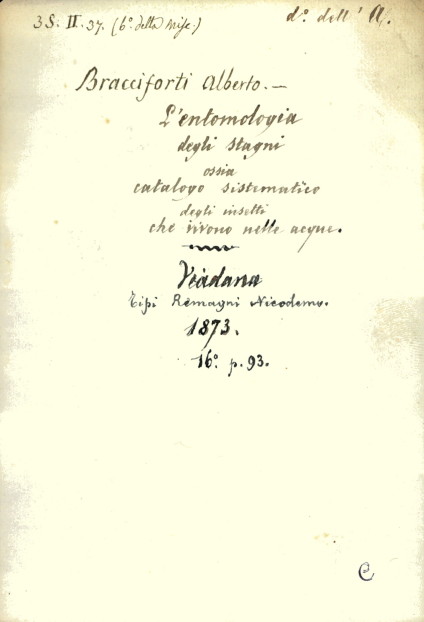 3 S. II. 37. (6° della Misc.)
d° dell' A.
Bracciforti Alberto. —
L'entomologia
degli stagni
ossia
catalogo sistematico
degli insetti
che vivono nelle acque.
Viadana
Tipi Remagni Nicodemo.
1873.
16° p. 93.
C